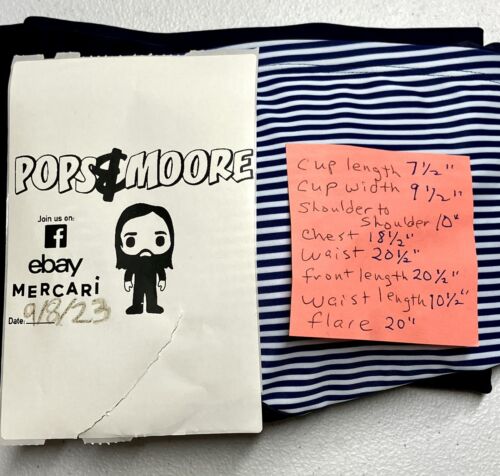 POPS&MOORE
Join us on:
f
ebay
MERCARI
Date: 9/8/23
Cup length 7½"
Cup width 9½"
Shoulder to
Shoulder 10"
Chest 18½"
Waist 20½"
front length 20½"
Waist length 10½"
flare 20"